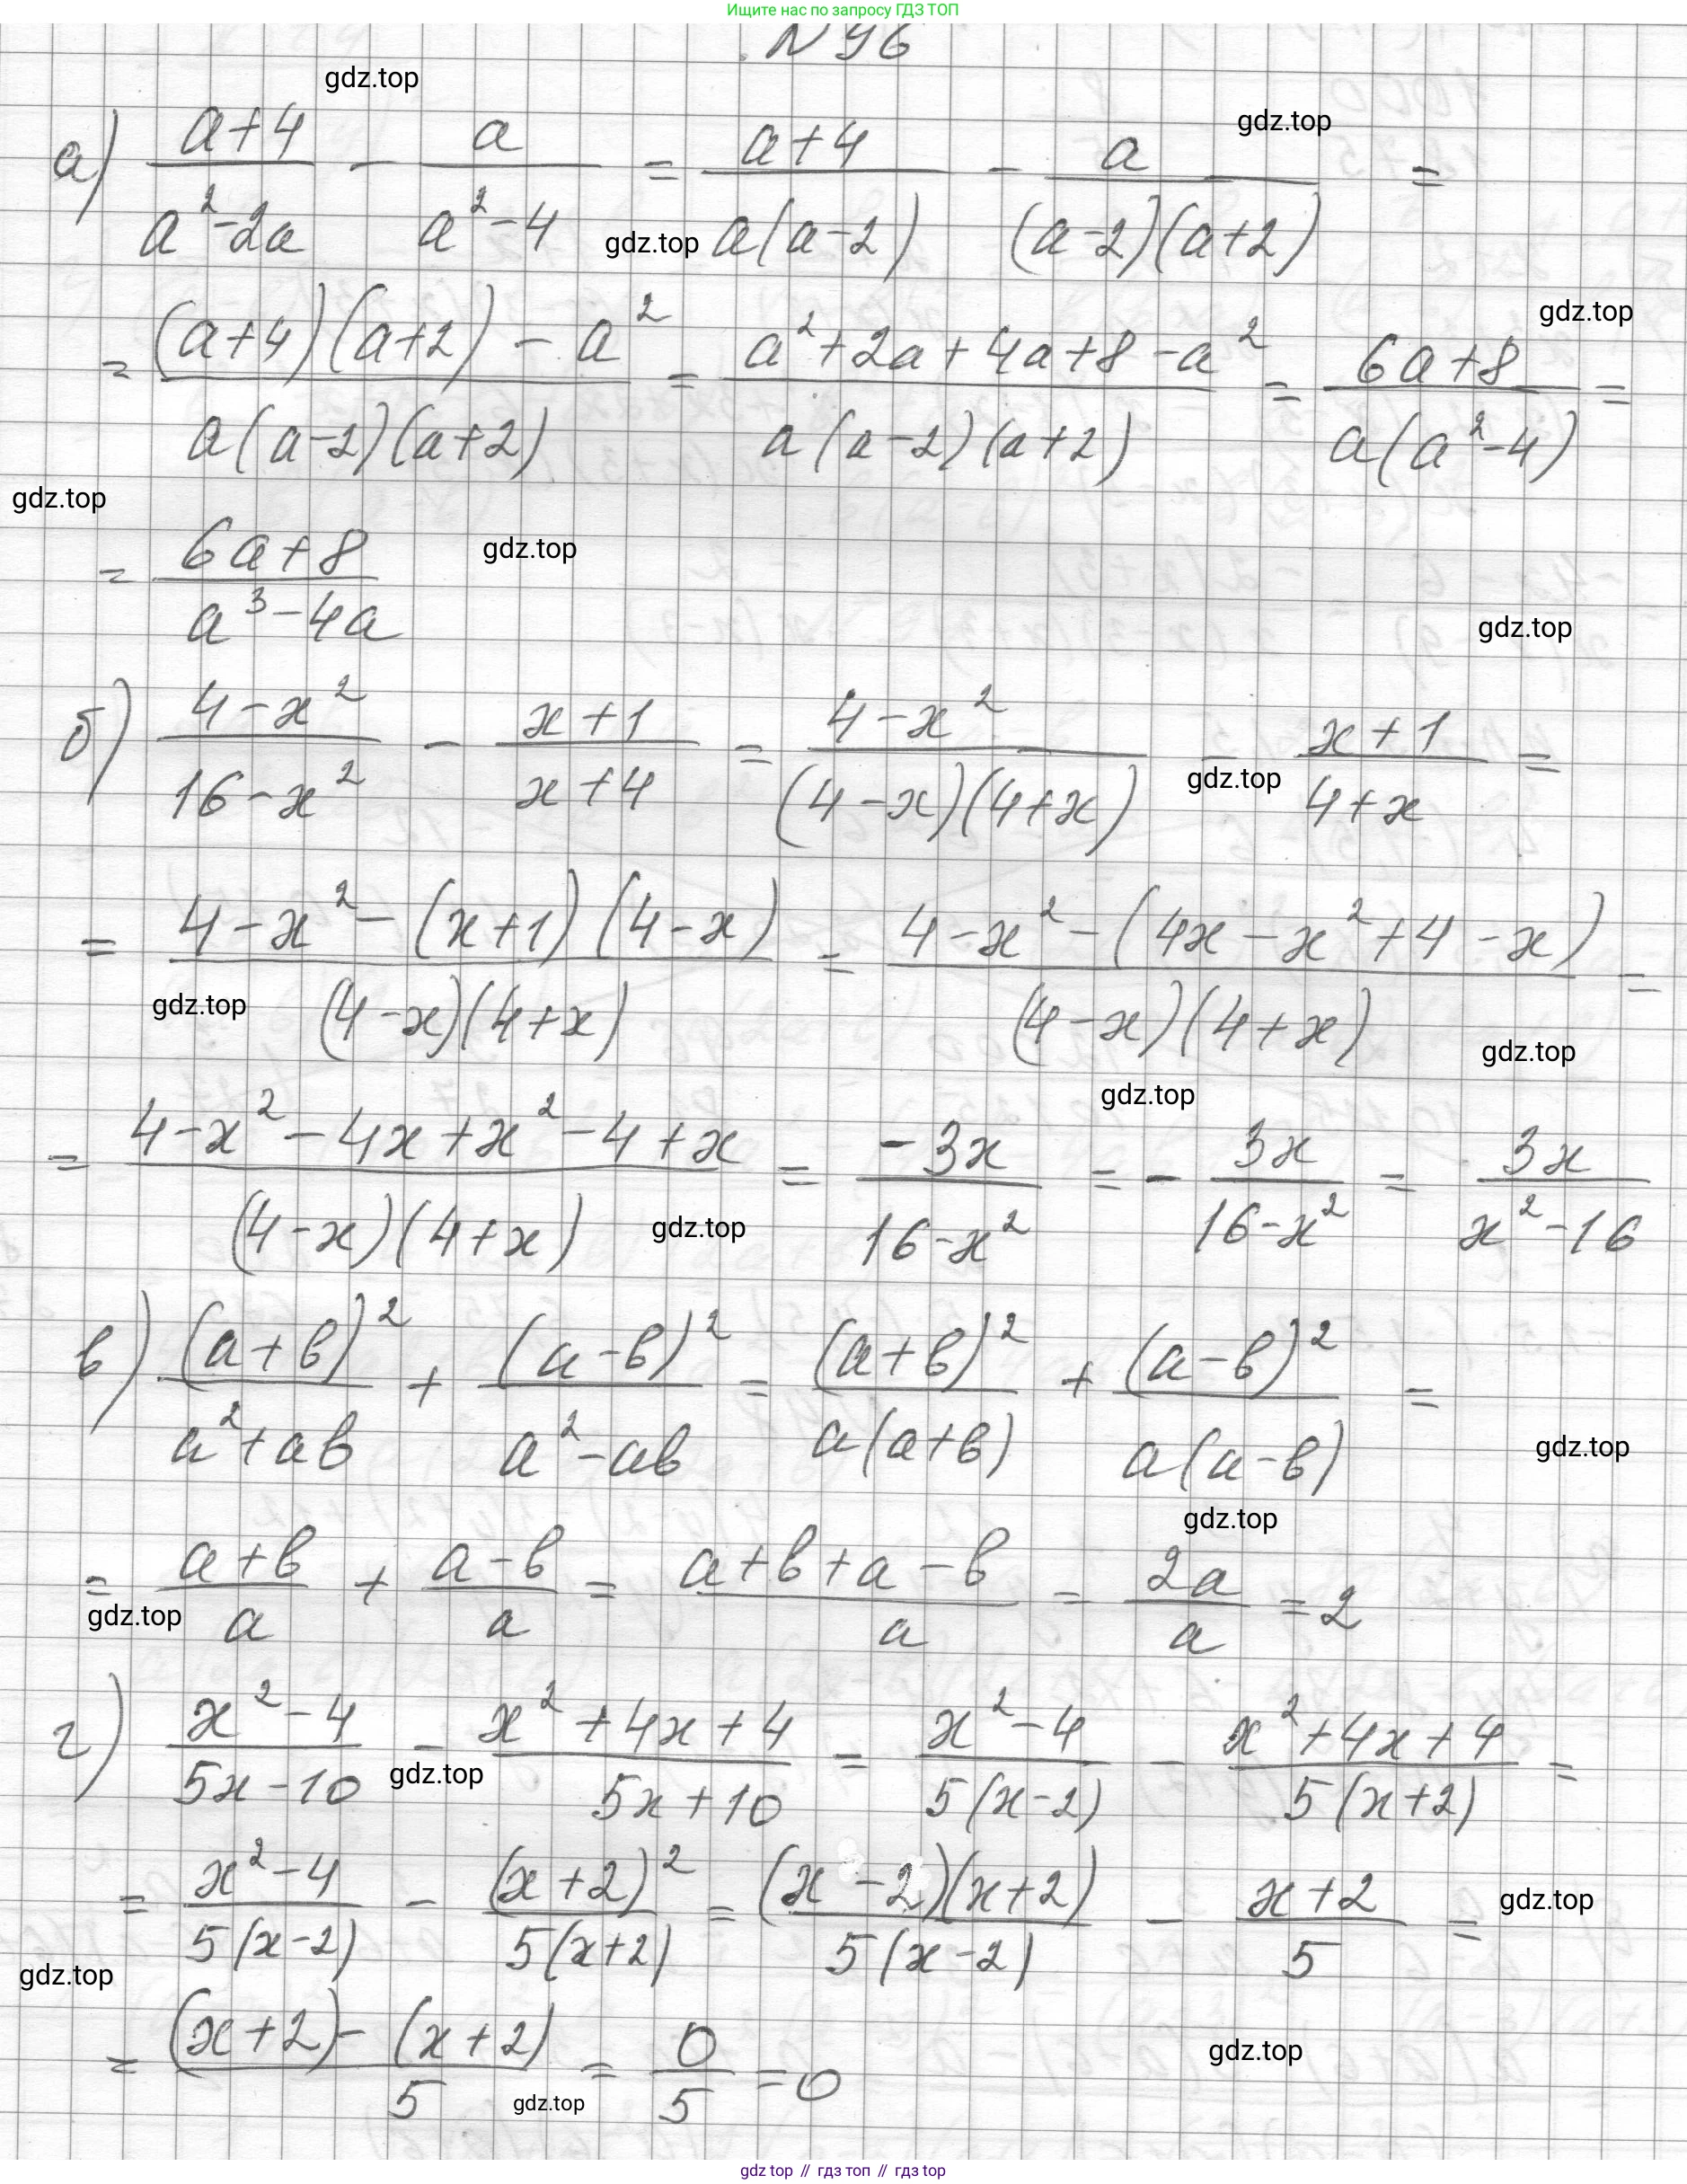 Ищите нас по запросу ГДЗ ТОП
N 96
gdz.top
gdz.top
а) (a+4)/(a²-2a) - a/(a²-4) = (a+4)/(a(a-2)) - a/((a-2)(a+2)) =
gdz.top
gdz.top
= ((a+4)(a+2) - a²)/(a(a-2)(a+2)) = (a²+2a+4a+8-a²)/(a(a-2)(a+2)) = (6a+8)/(a(a²-4)) =
gdz.top
gdz.top
= (6a+8)/(a³-4a)
gdz.top
б) (4-x²)/(16-x²) - (x+1)/(x+4) = (4-x²)/((4-x)(4+x)) - (x+1)/(4+x) =
gdz.top
= (4-x²-(x+1)(4-x))/((4-x)(4+x)) = (4-x²-(4x-x²+4-x))/((4-x)(4+x)) =
gdz.top
gdz.top
gdz.top
= (4-x²-4x+x²-4+x)/((4-x)(4+x)) = (-3x)/(16-x²) = - 3x/(16-x²) = 3x/(x²-16)
gdz.top
в) (a+b)²/(a²+ab) + (a-b)²/(a²-ab) = (a+b)²/(a(a+b)) + (a-b)²/(a(a-b)) =
gdz.top
gdz.top
= (a+b)/a + (a-b)/a = (a+b+a-b)/a = 2a/a = 2
gdz.top
г) (x²-4)/(5x-10) - (x²+4x+4)/(5x+10) = (x²-4)/(5(x-2)) - (x²+4x+4)/(5(x+2)) =
gdz.top
= (x²-4)/(5(x-2)) - (x+2)²/(5(x+2)) = ((x-2)(x+2))/(5(x-2)) - (x+2)/5 =
gdz.top
gdz.top
= ((x+2)-(x+2))/5 = 0/5 = 0
gdz.top
gdz.top
gdz top // гдз топ // гдз top